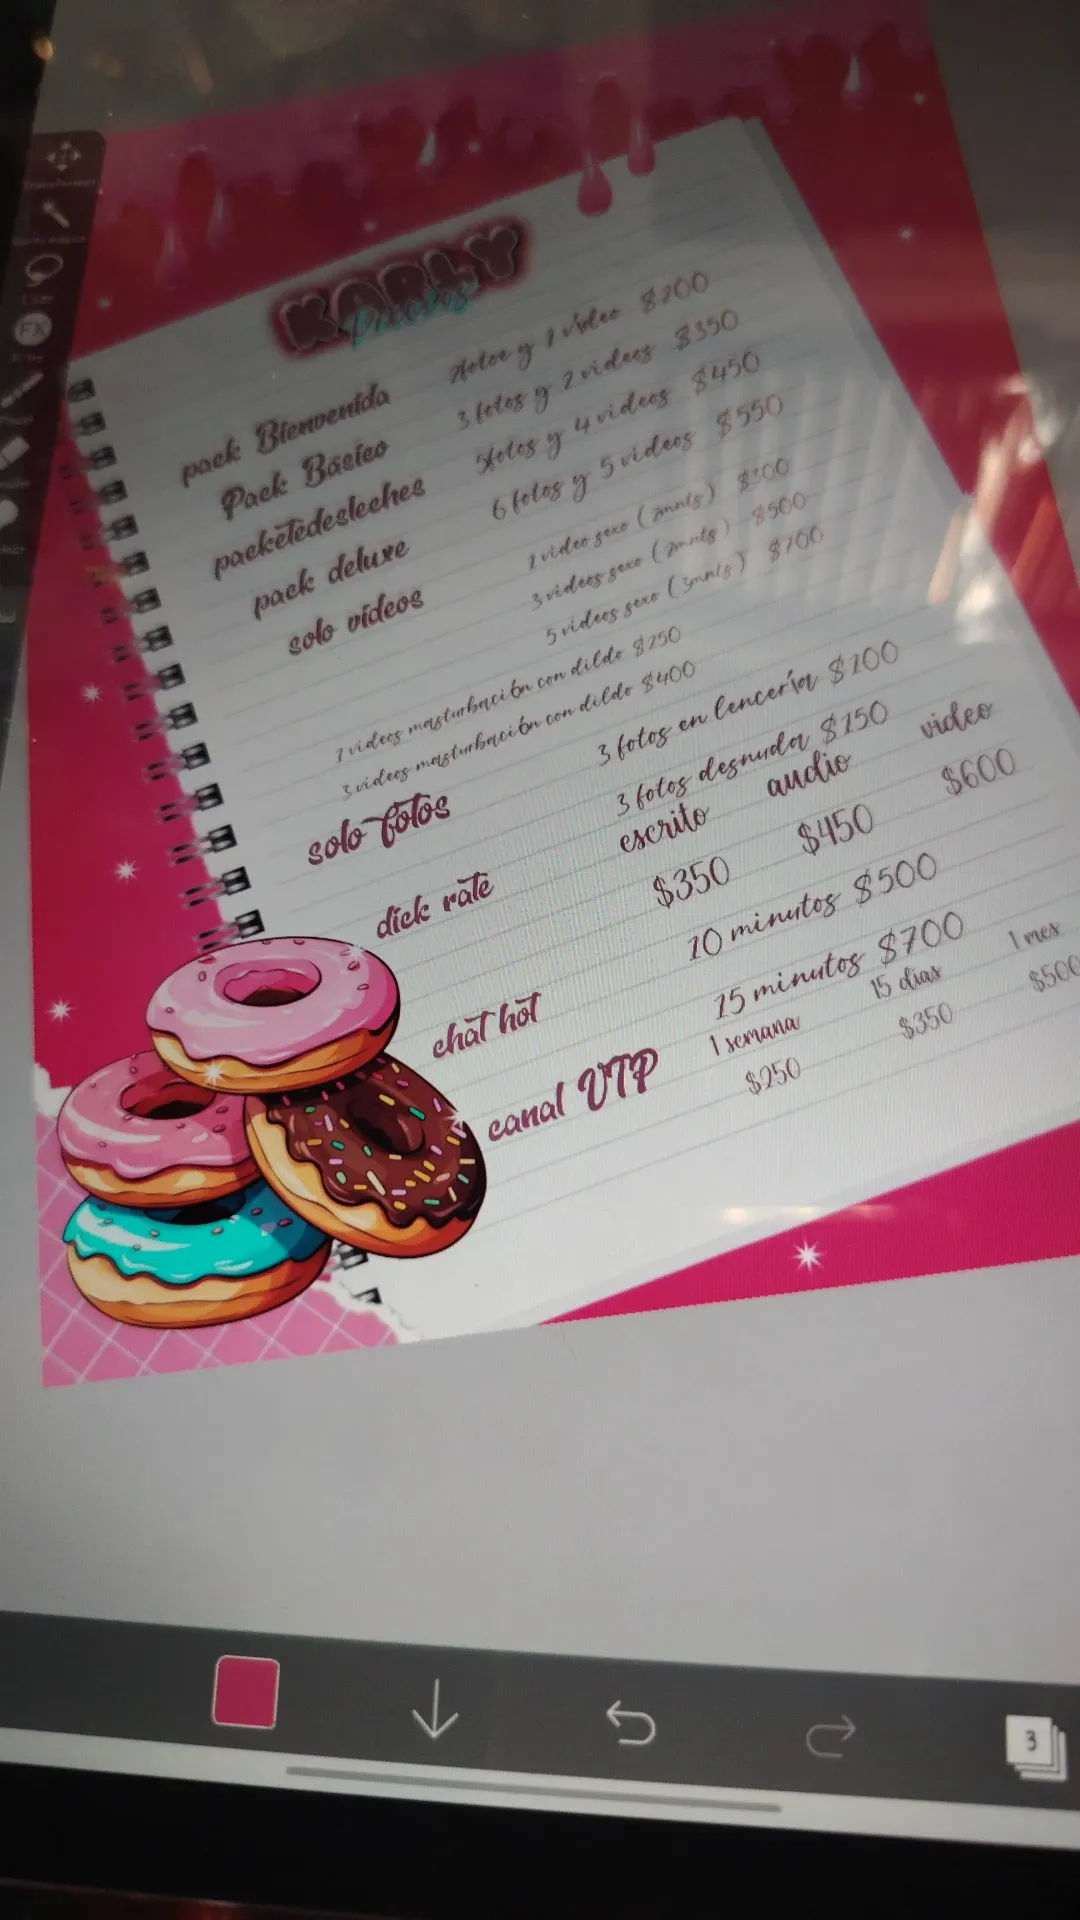 KARLY
Precios
pack Bienvenida fotos y 1 video $200
Pack Básico 3 fotos y 2 videos $350
packetedesleches 5fotos y 4 videos $450
pack deluxe 6 fotos y 5 videos $550
solo videos 1 video sexo (2mnts) $300
3 videos sexo (2mnts) $500
5 videos sexo (3mnts) $700
videos masturbación con dildo $250
3 videos masturbación con dildo $400
solo fotos 3 fotos en lencería $100
3 fotos desnuda $150
dick rate escrito audio video
$350 $450 $600
chat hot 10 minutos $500
15 minutos $700
canal VIP 1 semana 15 dias 1 mes
$250 $350 $500
FX
3